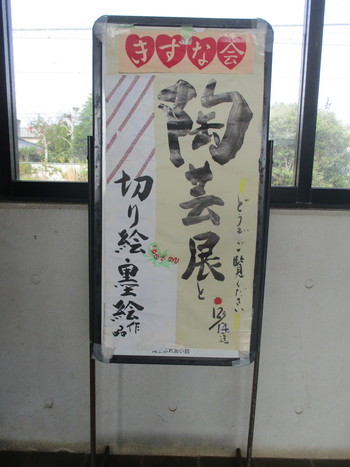 きずな会
陶芸展と
切り絵・墨絵作品
どうぞご覧ください